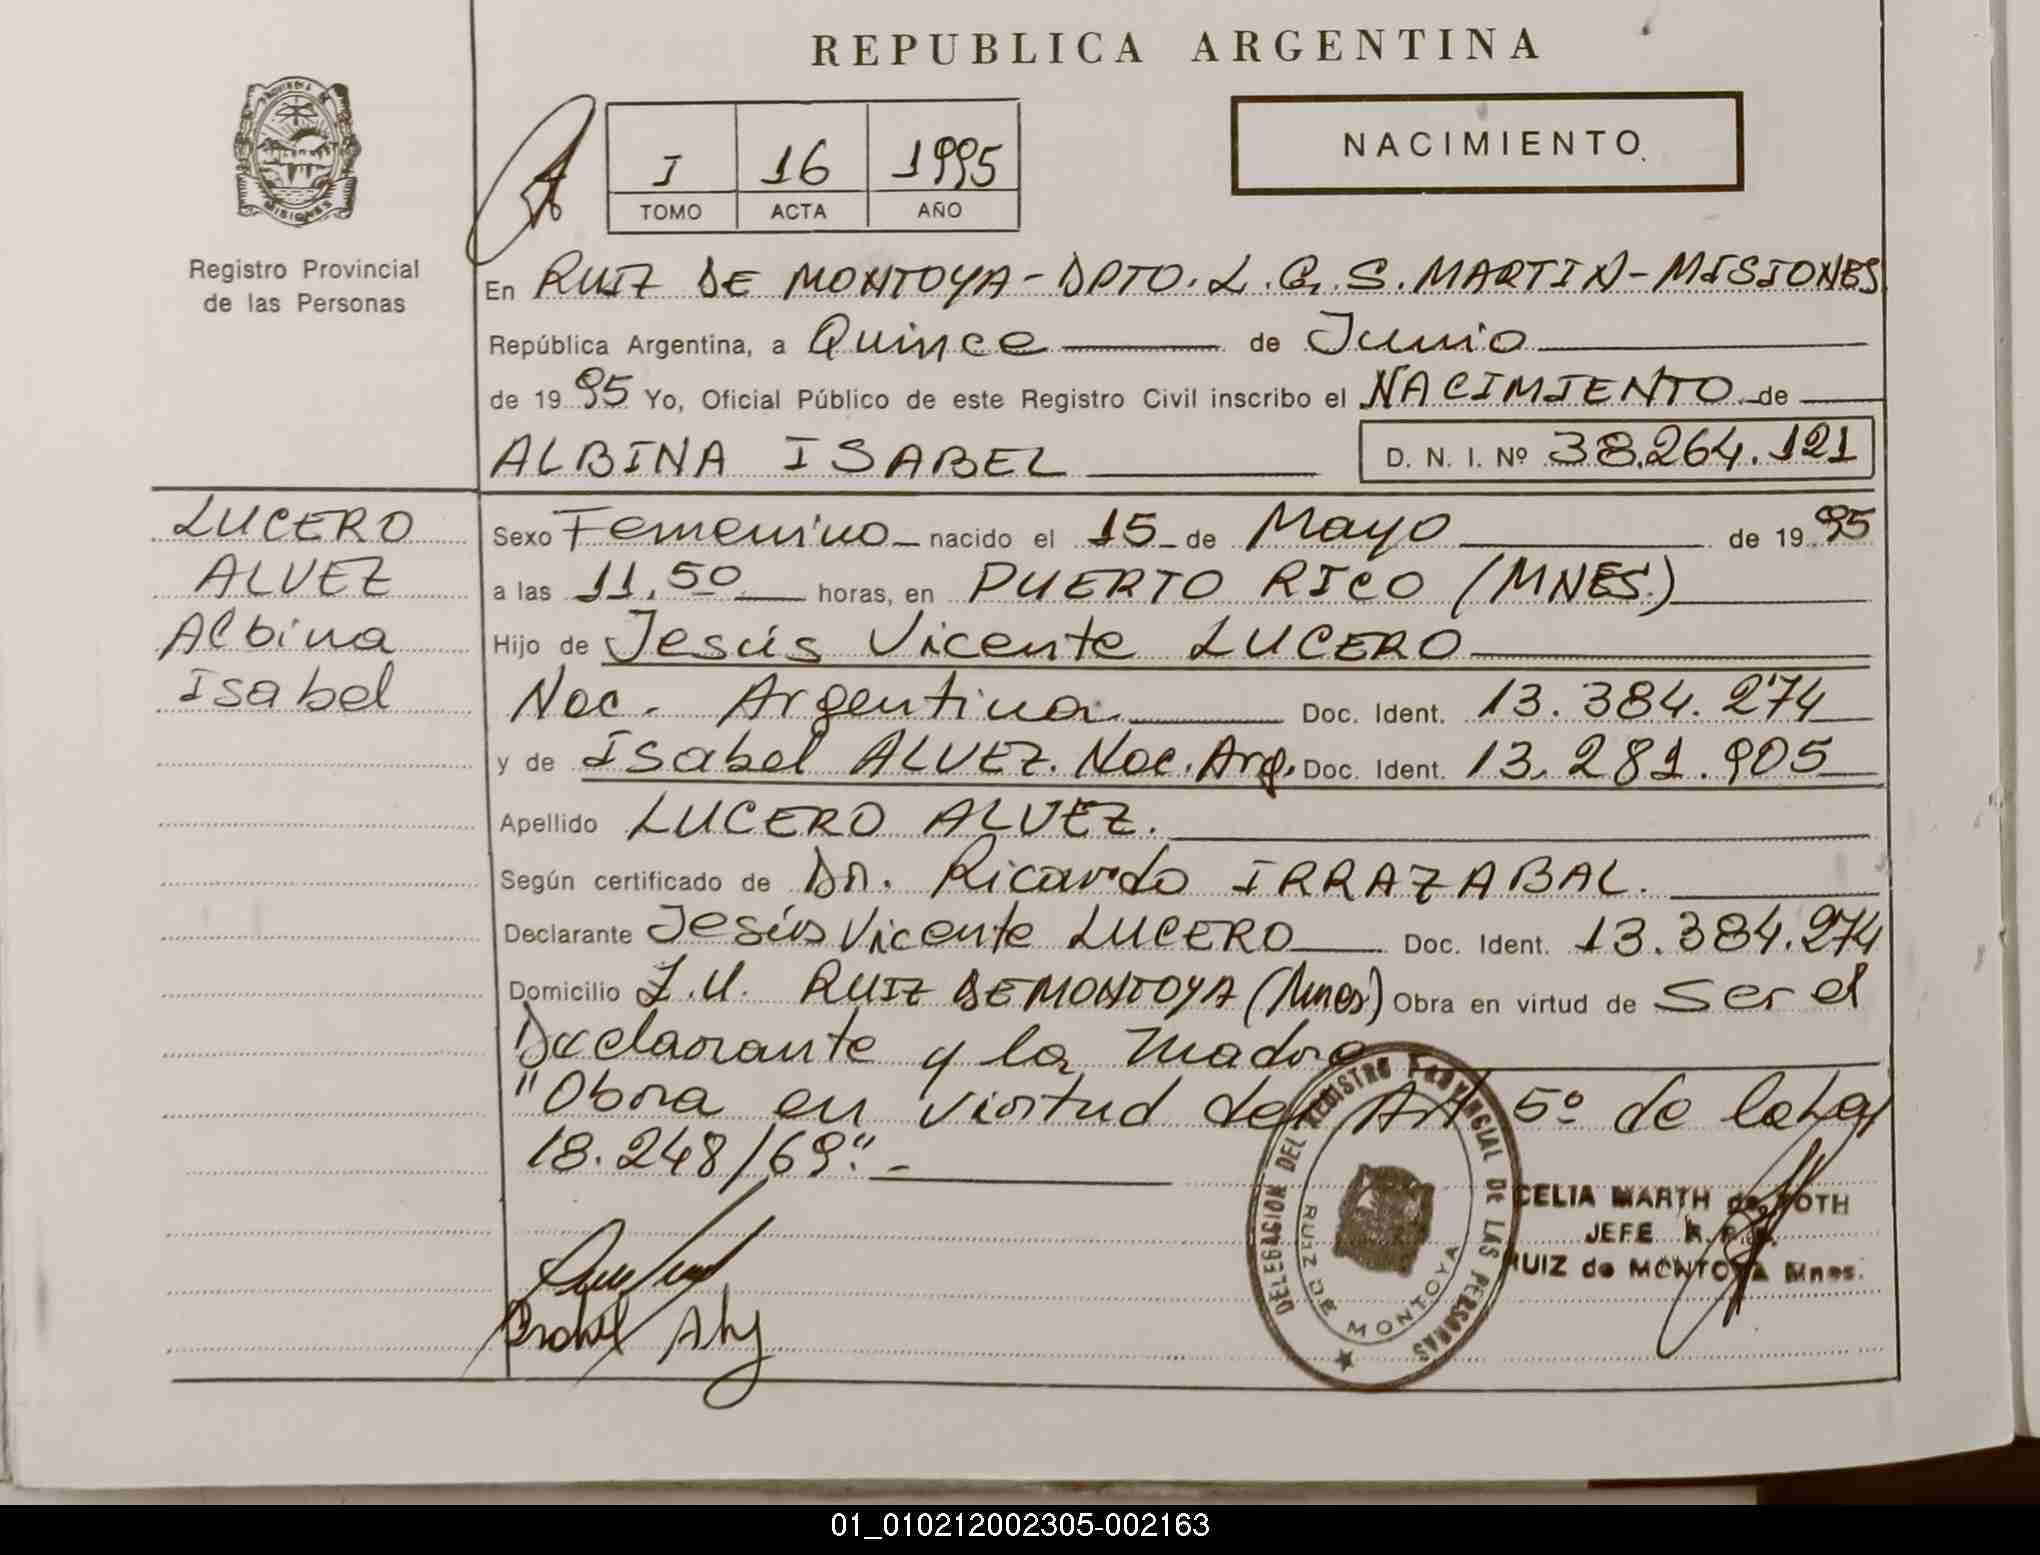 REPUBLICA ARGENTINA
PROVINCIA DE
MISIONES
Registro Provincial
de las Personas
I 16 1995
TOMO ACTA AÑO
NACIMIENTO
En RUIZ DE MONTOYA - DPTO. L. G. S. MARTIN - MISIONES
República Argentina, a Quince de Junio
de 1995 Yo, Oficial Público de este Registro Civil inscribo el NACIMIENTO de
ALBINA ISABEL D. N. I. Nº 38.264.121
LUCERO
ALVEZ
Albina
Isabel
Sexo Femenino nacido el 15 de Mayo de 1995
a las 11.50 horas, en PUERTO RICO (MNES.)
Hijo de Jesús Vicente LUCERO
Nac. Argentina Doc. Ident. 13.384.274
y de Isabel ALVEZ. Nac. Arg. Doc. Ident. 13.281.905
Apellido LUCERO ALVEZ.
Según certificado de Dr. Ricardo IRRAZABAL.
Declarante Jesús Vicente LUCERO Doc. Ident. 13.384.274
Domicilio RUIZ DE MONTOYA (Mnes) Obra en virtud de Ser el
Declarante y la Madre
"Obra en virtud del Art 5º de la Ley
18.248/69".-
DELEGACION DEL REGISTRO PROVINCIAL DE LAS PERSONAS
RUIZ DE MONTOYA
CELIA MARTH de ROTH
JEFE R. P. P.
RUIZ de MONTOYA Mnes.
01_010212002305-002163